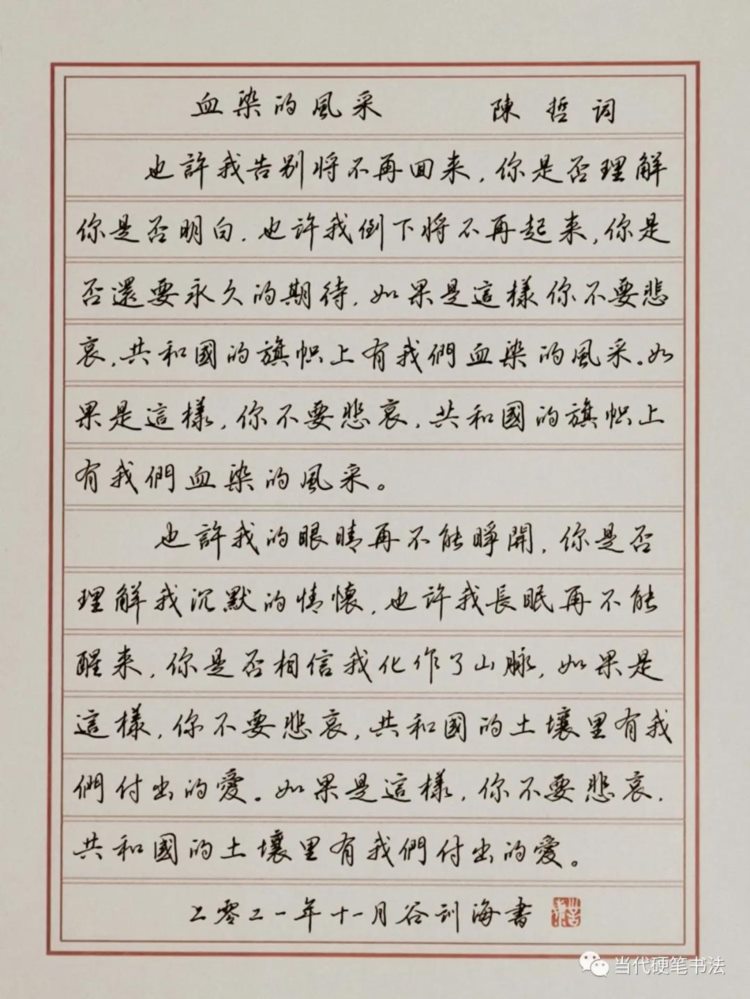 血染的風采 陳哲词
也許我告别将不再回来,你是否理解
你是否明白,也許我倒下将不再起来,你是
否還要永久的期待,如果是這樣你不要悲
哀,共和國的旗帜上有我們血染的風采。如
果是這樣,你不要悲哀,共和國的旗帜上
有我們血染的風采。
也許我的眼睛再不能睁開,你是否
理解我沉默的情懷,也許我長眠再不能
醒来,你是否相信我化作了山脉,如果是
這樣,你不要悲哀,共和國的土壤里有我
們付出的愛。如果是這樣,你不要悲哀,
共和國的土壤里有我們付出的愛。
二零二一年十一月谷训海書
当代硬笔书法